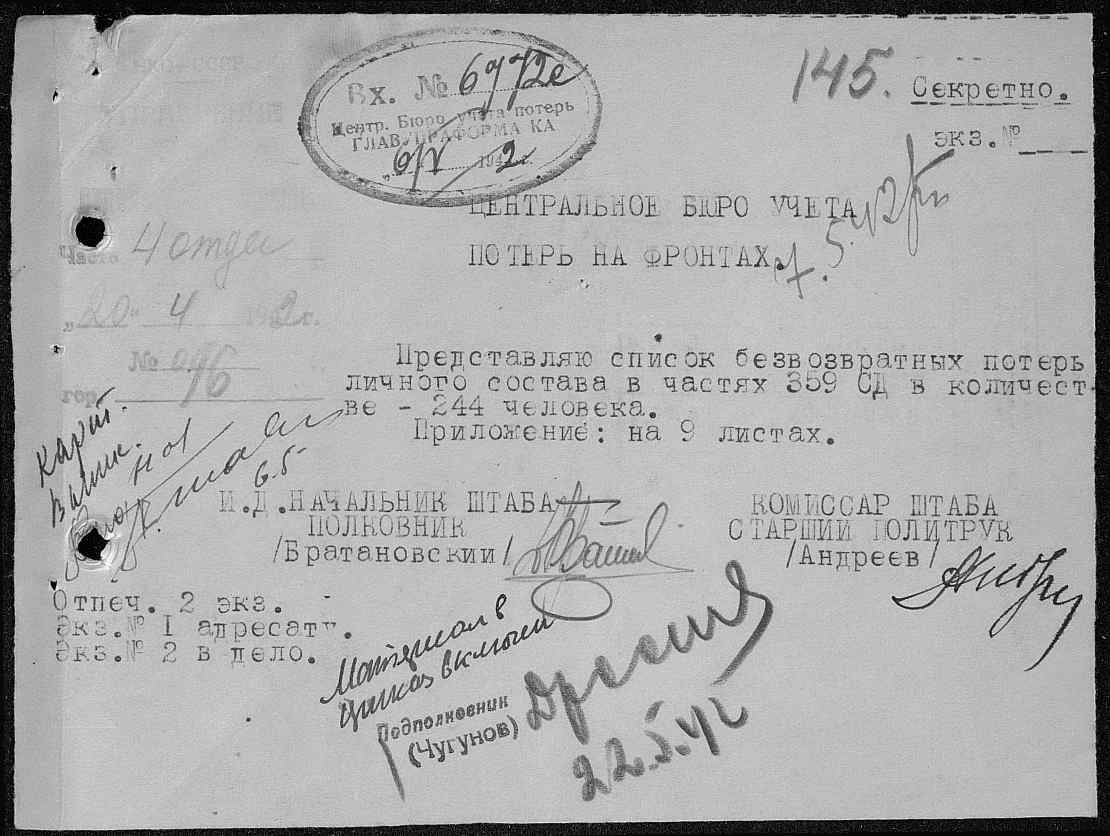 Вх. № 6972с
Центр. Бюро учета потерь
ГЛАВУПРАФОРМА КА
„6/V 1942г.
145.
Секретно.
экз.№
ЦЕНТРАЛЬНОЕ БЮРО УЧЕТА
ПОТЕРЬ НА ФРОНТАХ.
7.5.
Часть 4 отдел
„20" 4 1942г.
№ 096
гор.
Представляю список безвозвратных потерь
личного состава в частях 359 СД в количест-
ве - 244 человека.
Приложение: на 9 листах.
6.5
И.Д.НАЧАЛЬНИК ШТАБА
ПОЛКОВНИК
/Братановский/
КОМИССАР ШТАБА
СТАРШИЙ ПОЛИТРУК
/Андреев/
Отпеч. 2 экз.
Экз.№ I адресату.
Экз.№ 2 в дело.
Материал в
приказ включен
Подполковник
(Чугунов)
22.5.42